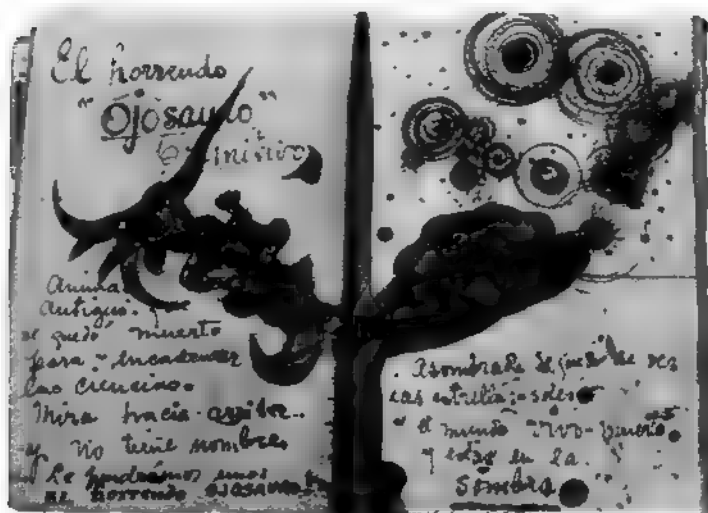 El horrendo
"Ojosauro"
Primitivo
Animal
Antiguo.
se quedó muerto
para encadenar
las ciencias.
Mira hacia arriba..
y no tiene nombre,
Le pondremos unos
EL HORRENDO OJOSAURO
Asombrado se quedó de ver
las estrellas-soles
el mundo vivo-muerto
y está en la
Sombra